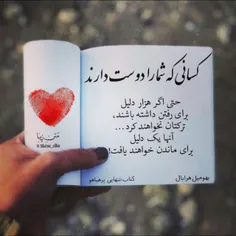 کسانی که شما را دوست دارند
حتی اگر هزار دلیل
برای رفتن داشته باشند،
ترکتان نخواهند کرد...
آنها یک دلیل
برای ماندن خواهند یافت!
بهومیل هرابال
کتاب: تنهایی پرهیاهو